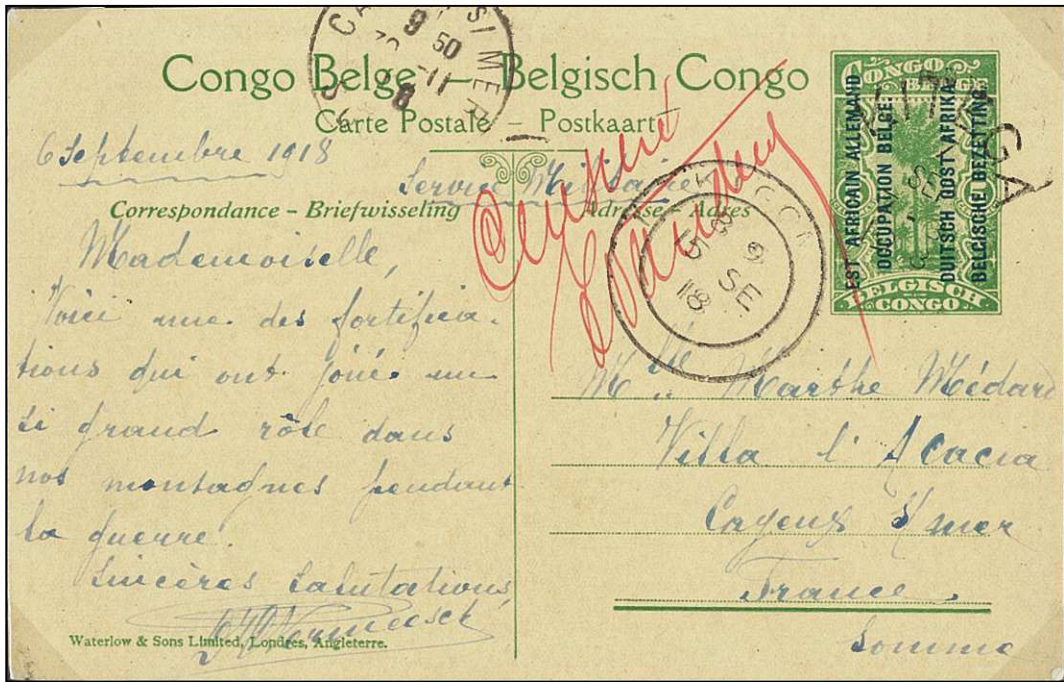 Congo Belge - Belgisch Congo
Carte Postale - Postkaart
6 Septembre 1918
Service Militaire
Correspondance - Briefwisseling
Adresse - Adres
Mademoiselle,
Voici une des fortifica-
tions qui ont joué un
si grand rôle dans
nos montagnes pendant
la guerre.
Sincères salutations,
Waterlow & Sons Limited, Londres, Angleterre.
CONGO
BELGE
EST AFRICAIN ALLEMAND
OCCUPATION BELGE.
DUITSCH OOST-AFRIKA
BELGISCHE BEZETTING.
BELGISCH
CONGO
9 50
11
8
SE
18
Mlle Marthe Médard
Villa l'Acacia
Cayeux s/mer
France.
Somme